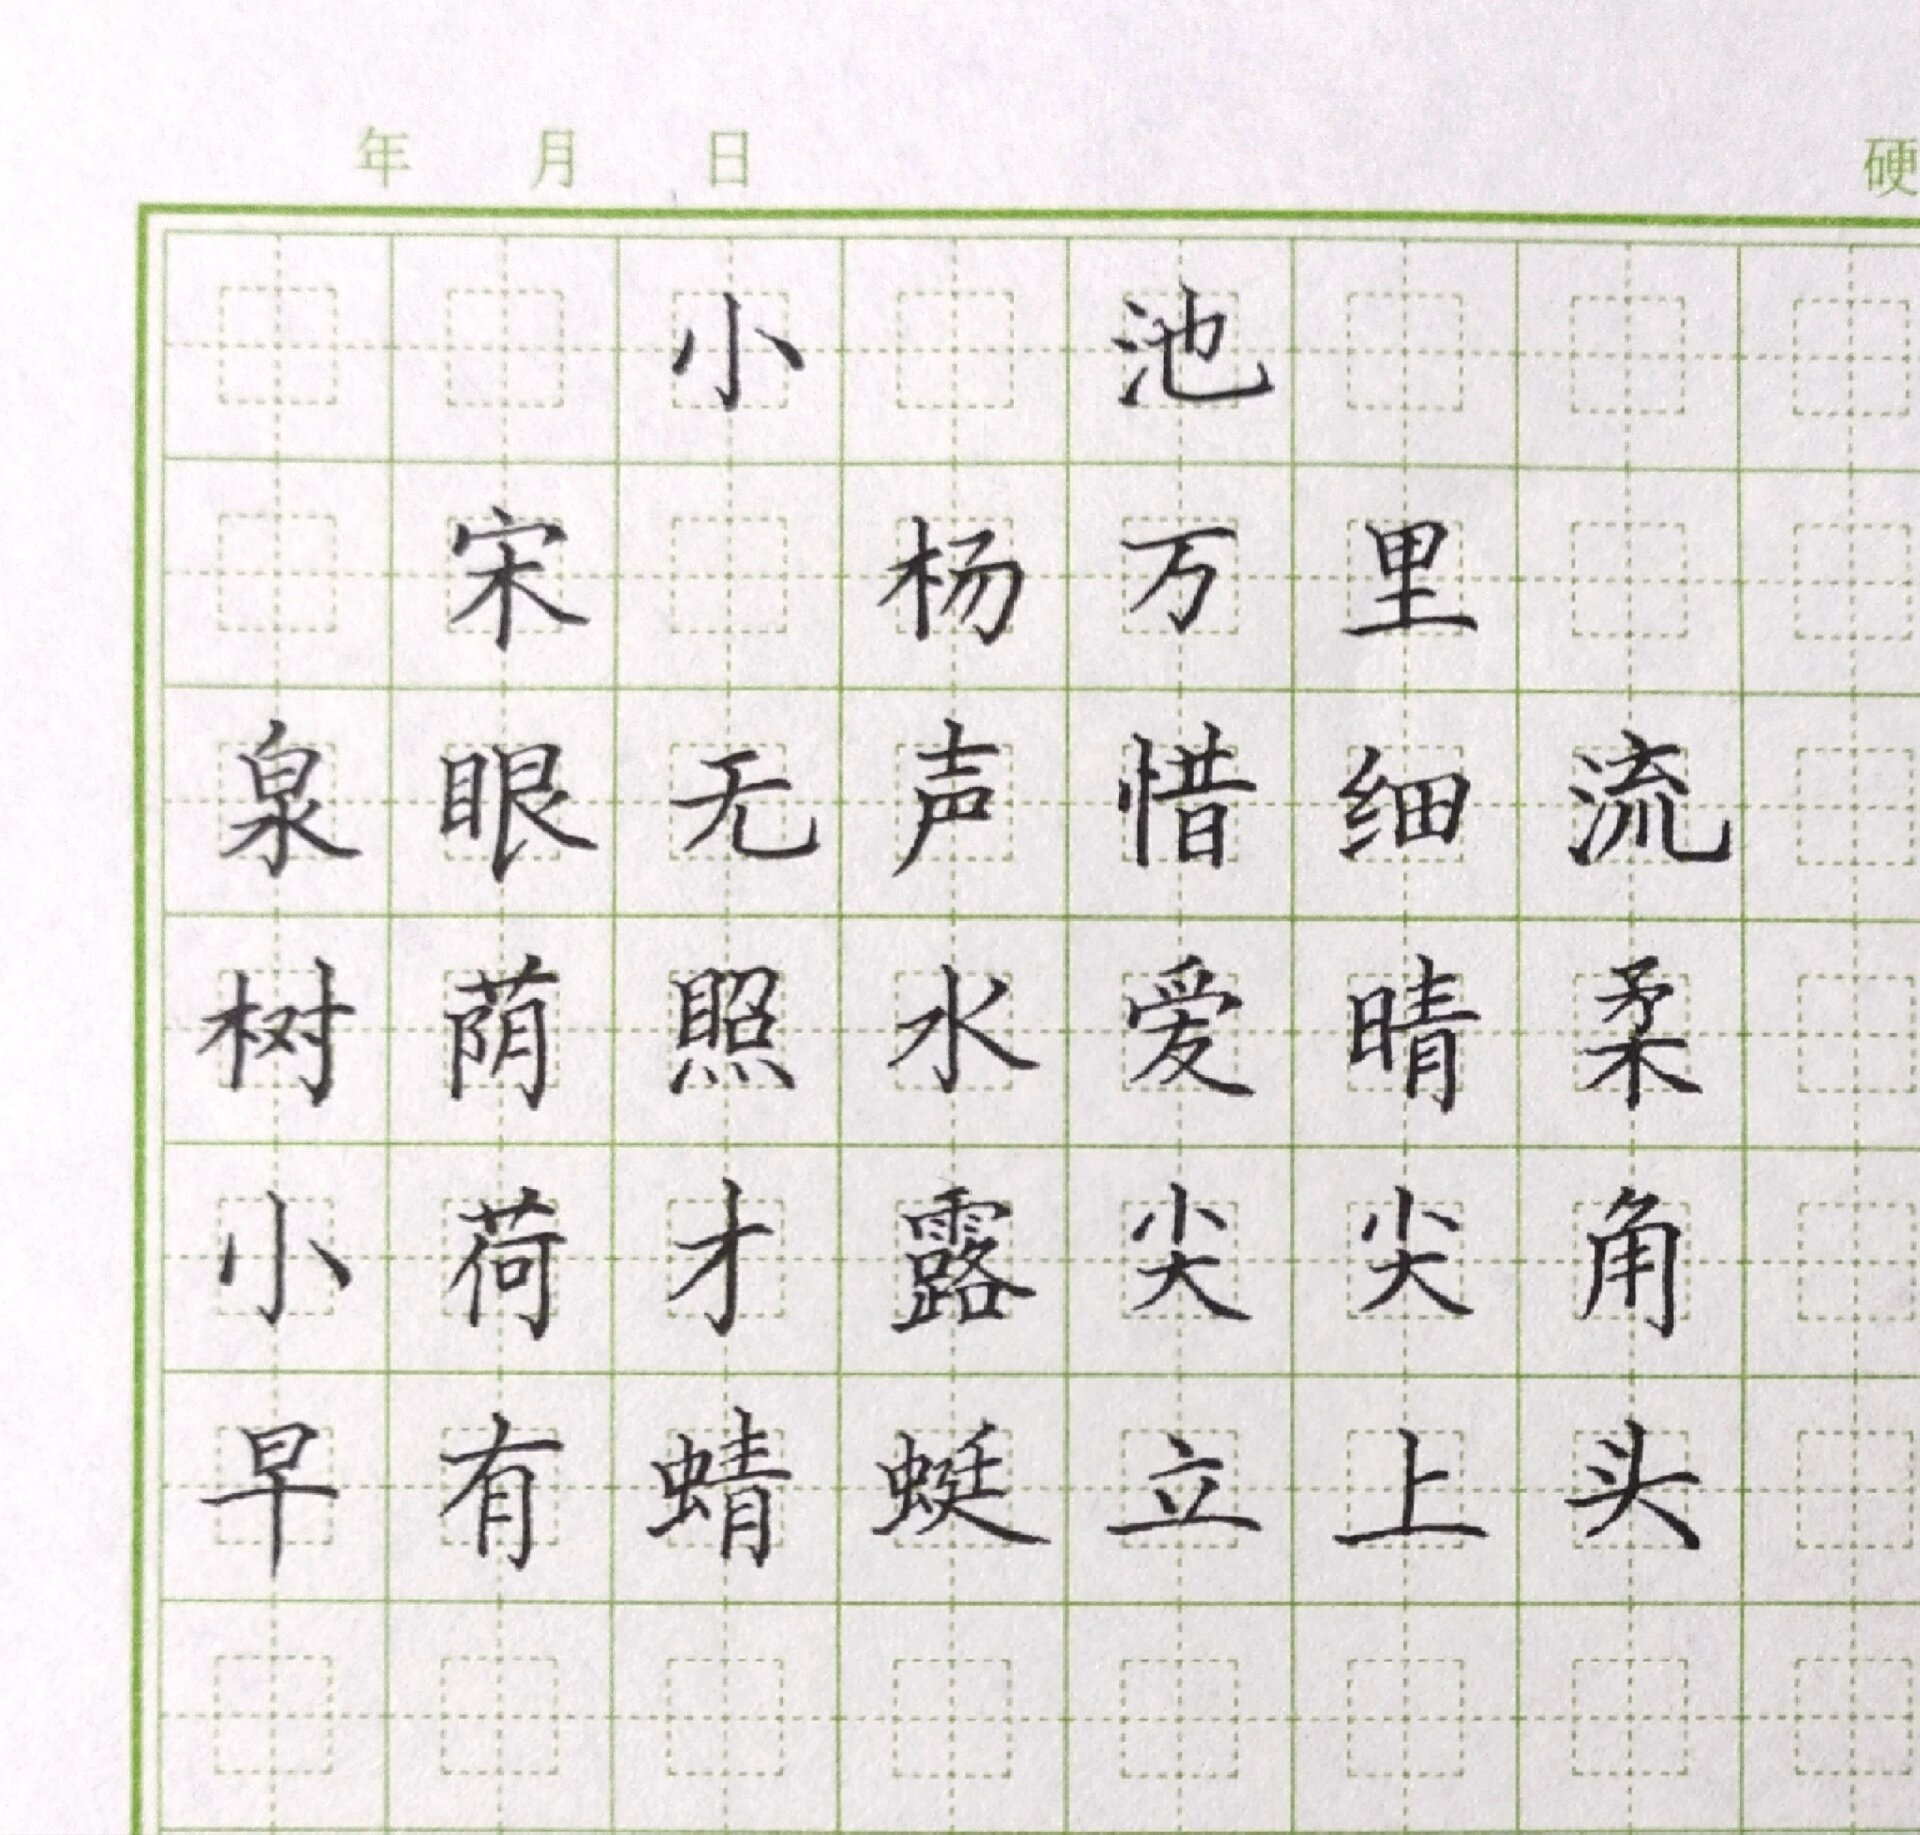 年 月 日 硬
小 池
宋 杨万里
泉眼无声惜细流
树荫照水爱晴柔
小荷才露尖尖角
早有蜻蜓立上头